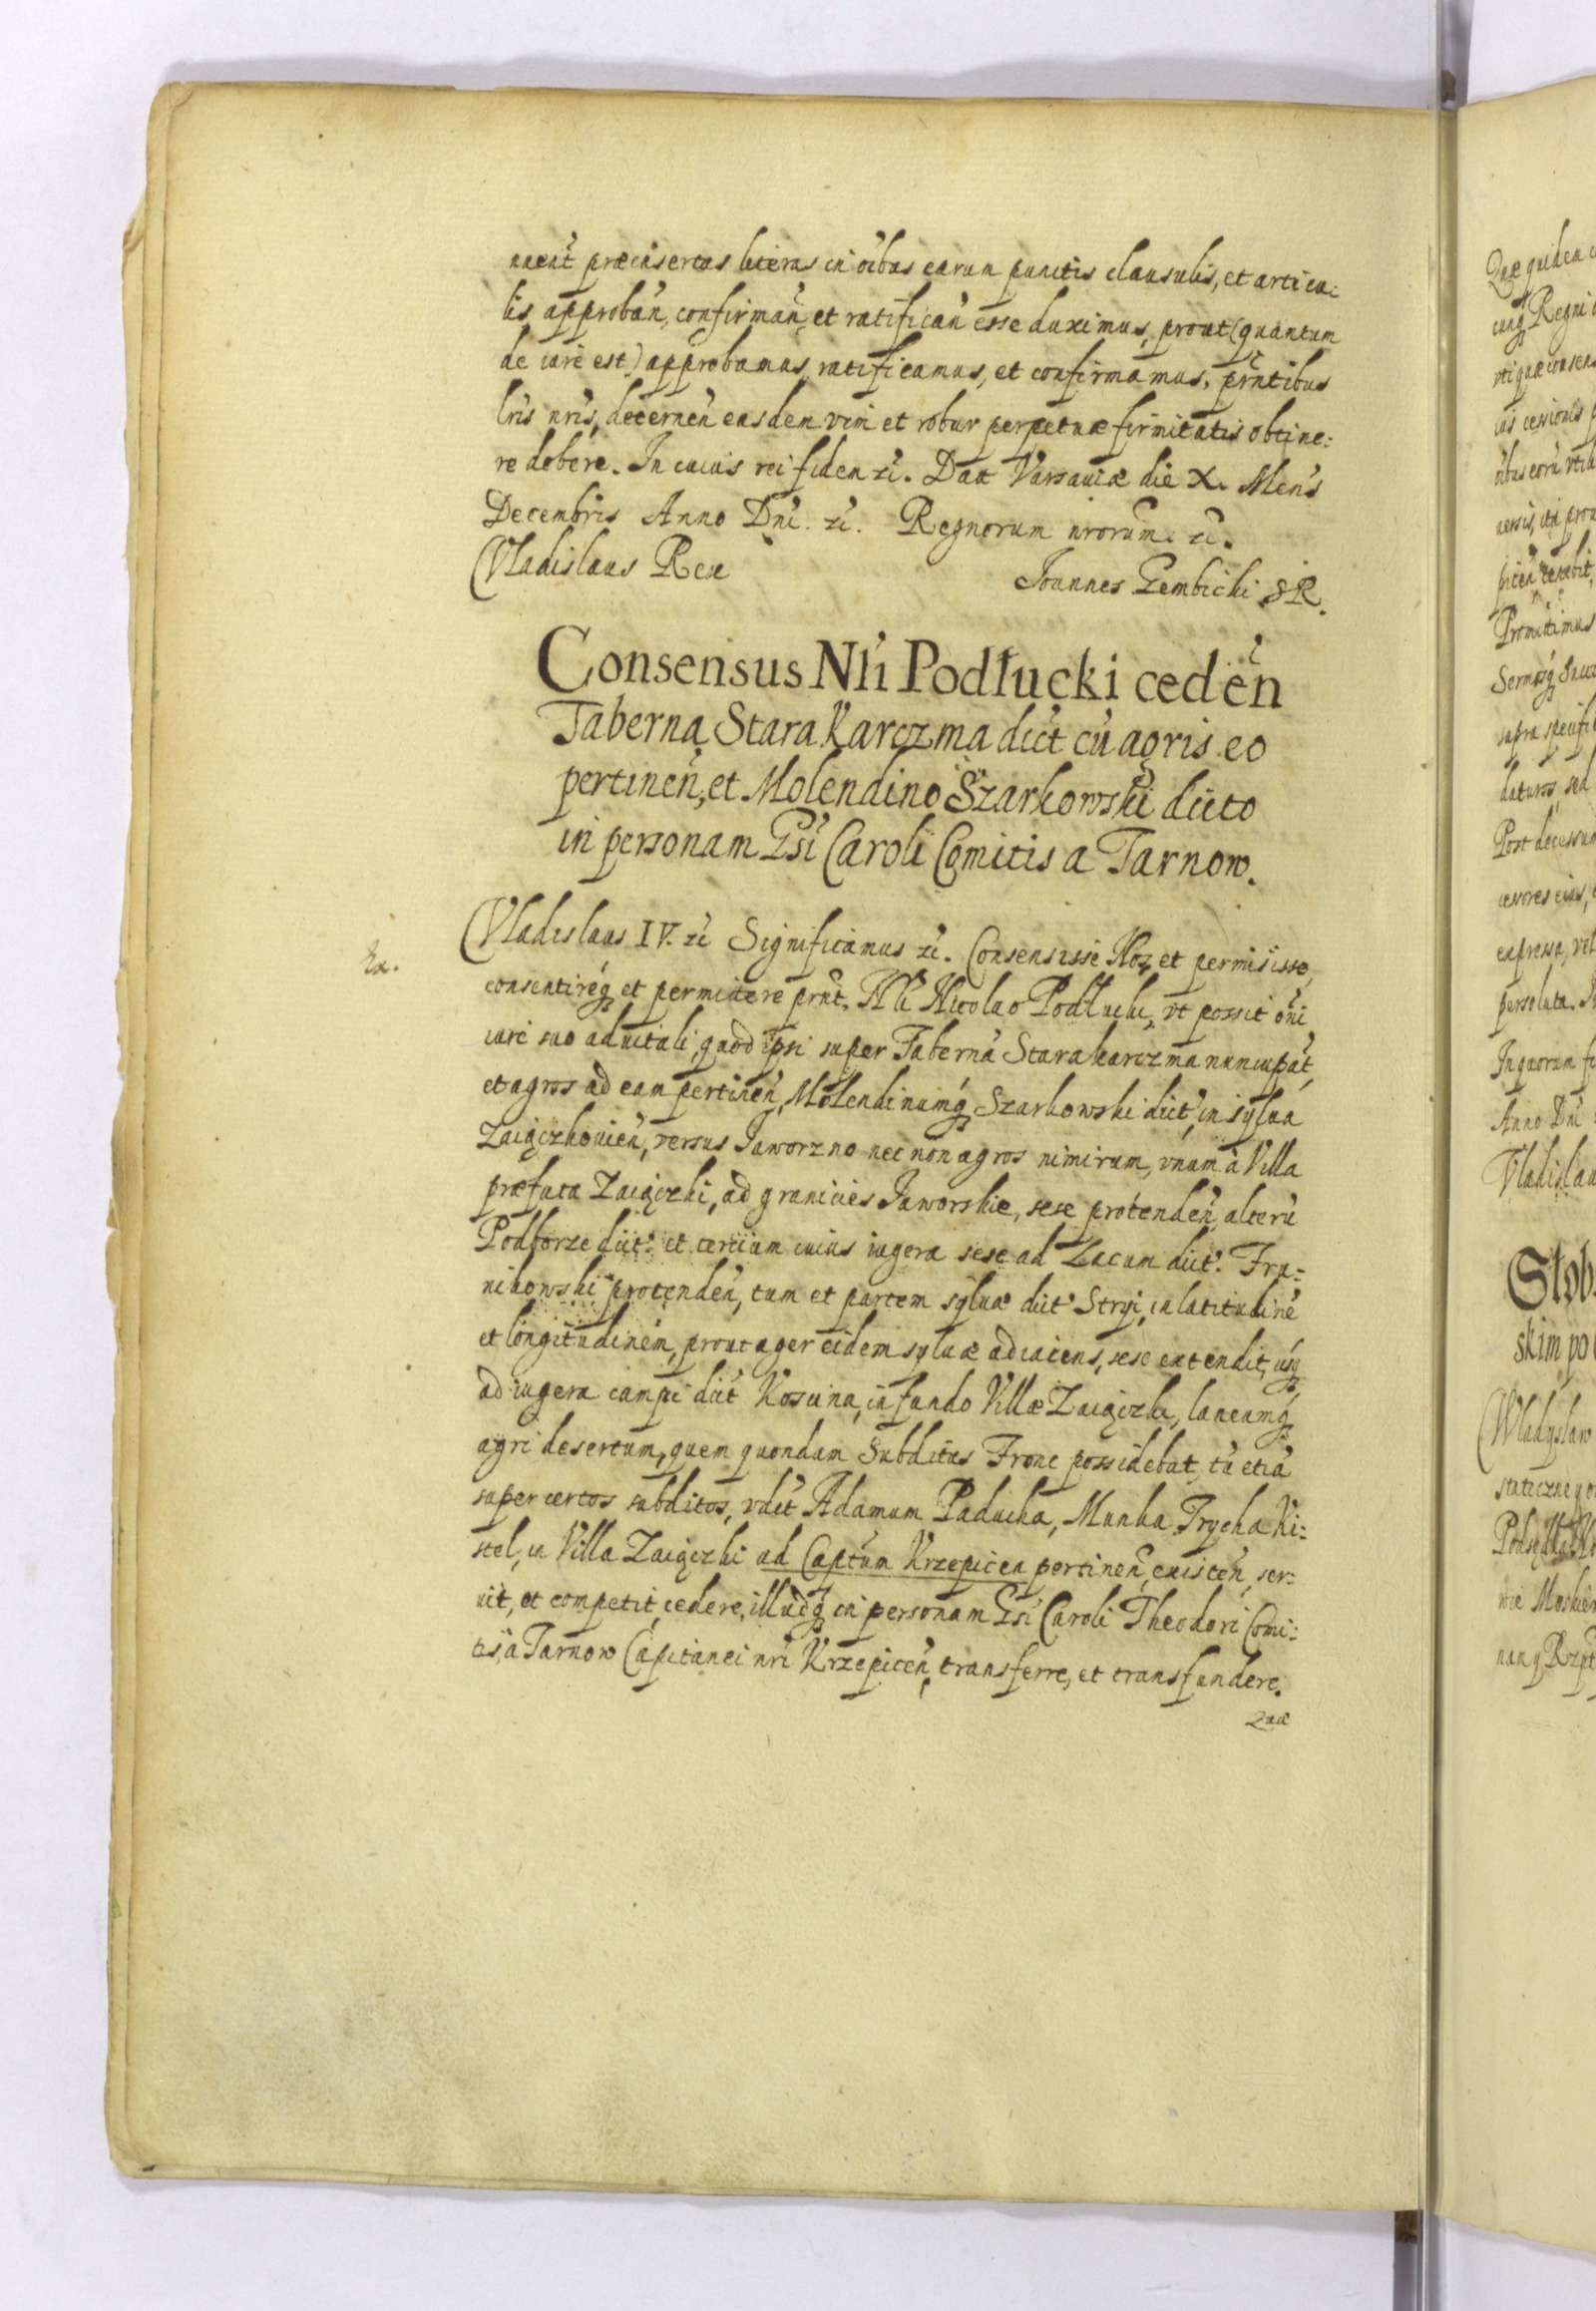 nuent præinsertas literas in oibus earum punctis clausulis, et articu:
lis, approban, confirman, et ratifican esse duximus, prout (quantum
de iure est) approbamus, ratificamus, et confirmamus, prntibus
lris nris, decernen easdem vim et robur perpetuæ firmitatis obtine:
re debere. In cuius rei fidem zc. Dat Varsauiæ die X. Mens
Decembris Anno Dni. zc. Regnorum nrorum. zc.
Vladislaus Rex
Ioannes Gembicki SR.
Consensus Nli Podłucki ceden
Taberna Stara Karczma dict cu agris eo
pertinen, et Molendino Szarkowski dicto
in personam Gsi Caroli Comitis a Tarnow.
Ex.
Vladislaus IV. zc Significamus zc. Consensisse Nos, et permisisse,
consentireq et permittere prnt. Nli Nicolao Podłucki, vt possit oni
iure suo aduitali, quod ipsi super Taberna Stara karczma nuncupat,
et agros ad eam pertinen, Molendinumq Szarkowski dict, in sylua
Zaiączkouien, versus Jaworzno nec non agros nimirum, vnum à Villa
præfata Zaiączki, ad granicies Jaworskie, sese protenden, alteru
Podborze dict. et tertium cuius iugera sese ad Lacum dict. Fra-
nikowski protenden, tum et partem syluæ dict Stryi, in latitudine
et longitudinem, prout ager eidem syluæ adiacens, sese extendit, usq
ad iugera campi dict Kosuina, in fundo Villæ Zaiączki, laneumq
agri desertum, quem quondam Subditus Fronc possidebat, tu etia
super certos subditos, vdct Adamum Paducha, Munka Frycha Ki:
stel, in Villa Zaiączki ad Captum Krzepicen pertinen, existen, ser-
uit, et competit, cedere, illudq in personam Gsi Caroli Theodori Comi:
tis, à Tarnow Capitanei nri Krzepicen, transferre, et transfundere.
Quæ
Quæ quidem
cunq Regni
vti quæ consens
ius cessionis
oibus eoru vtili
piceń tenebit,
Promittimus
Sermosq Succ
supra specifi
daturos sed
Post decessum
cessores eius,
expressa, vel
persoluta.
In quorum fi
Anno Dni
Vladislau
Słob
skim po
Władysław
stateczney
wie Moskie